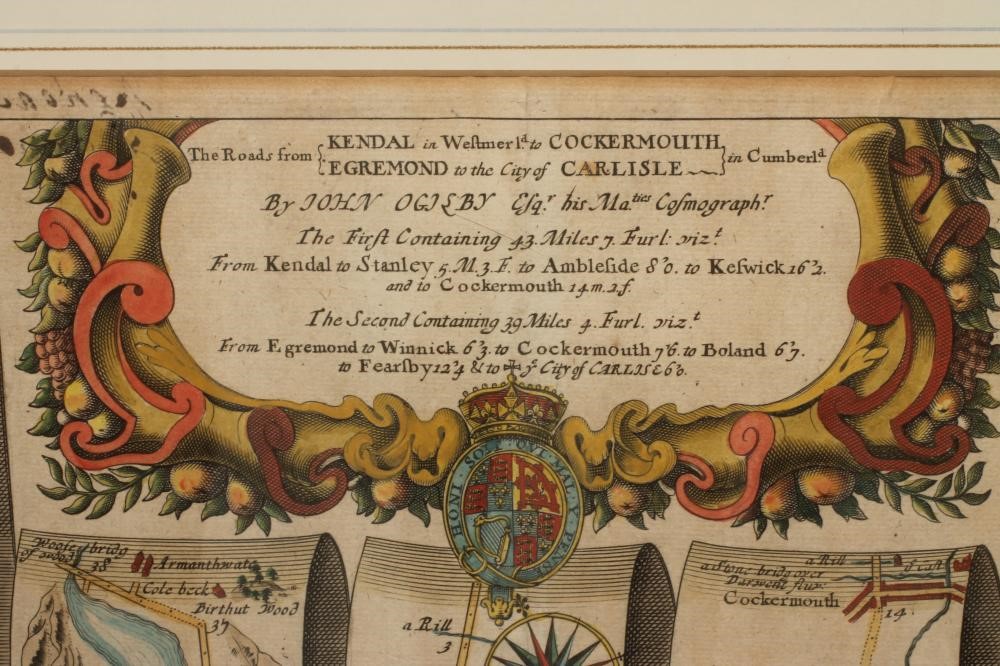 The Roads from { KENDAL in Weſtmerlᵈ. to COCKERMOUTH
EGREMOND to the City of CARLISLE } in Cumberlᵈ
By IOHN OGILBY Eſqʳ. his Maᵗⁱᵉˢ Coſmographʳ
The Firſt Containing 43. Miles 7. Furl: vizᵗ.
From Kendal to Stanley 5. M. 3. F. to Ambleſide 8'0. to Keſwick 16'2.
and to Cockermouth 14. m. 2 f.
The Second Containing 39 Miles 4. Furl. vizᵗ
From Egremond to Winnick 6'3. to Cockermouth 7'6. to Boland 6'7.
to Fearsby 12'4 & to yᵉ City of CARLISLE 6'0.
HONI SOIT QVI MAL Y PENS
Wooſe bridg
of wood
38
Armanthwate
Cole beck
Birthut Wood
37
a Rill
3
a Rill
a Stone bridg over
Darwent fluv.
Cockermouth
14